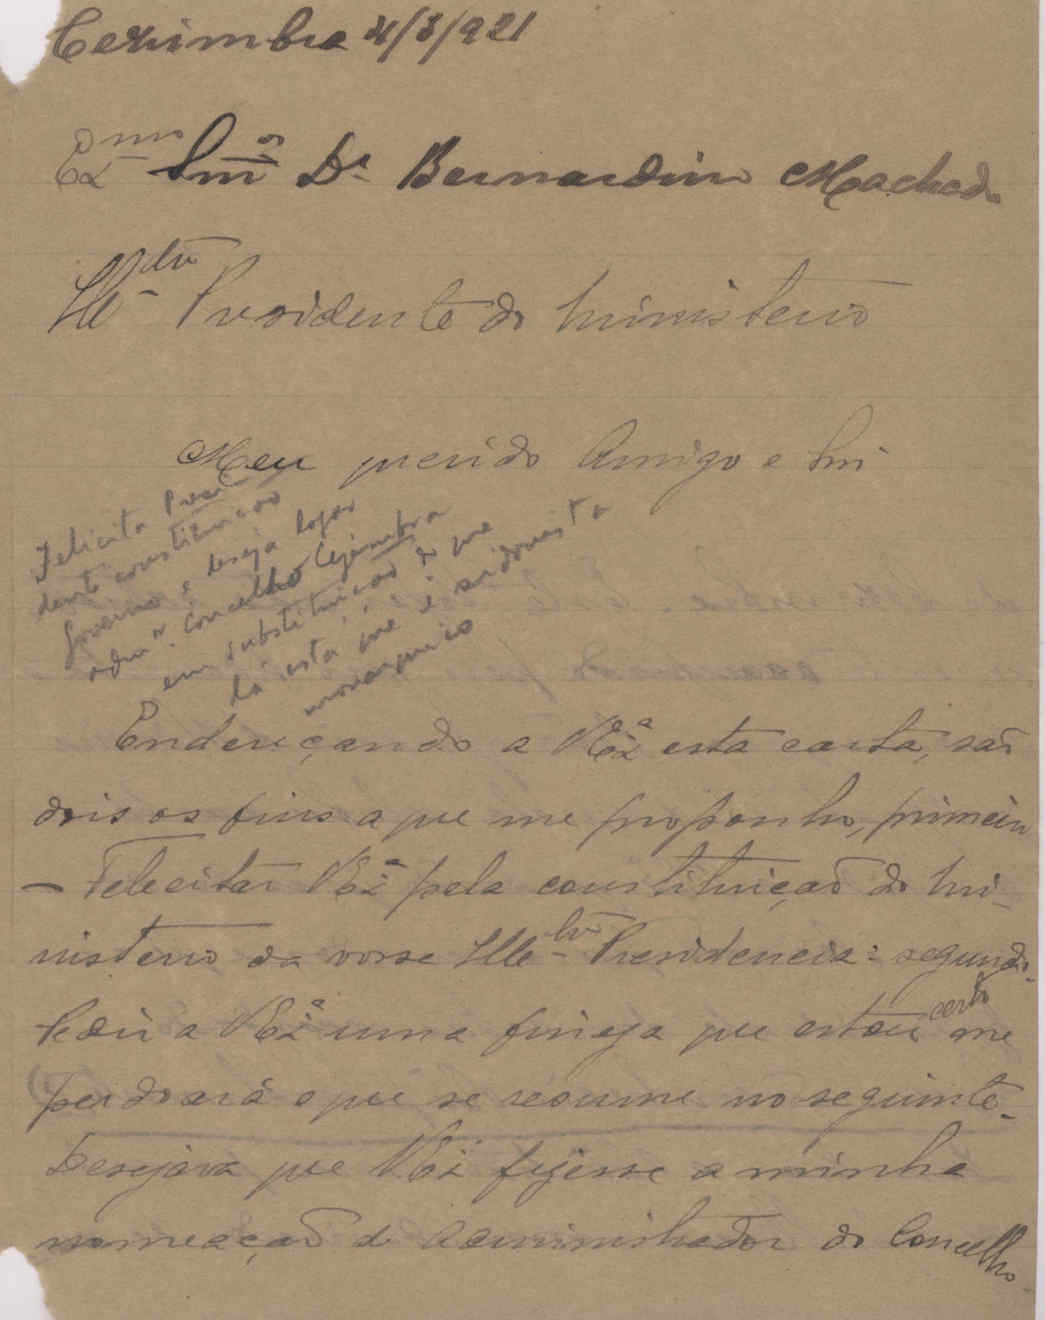 Cezimbra 4/3/921
Exmo Snr Dr Bernardino Machado
Presidente do Ministerio
Meu querido Amigo e Snr
Felicita Presi
dente constituicao
governo e deseja logar
admor concelho Cezimbra
em substituicao do que
lá está que é sidonista
monarquico
Endereçando a V Exa esta carta, são
dois os fins a que me proponho, primeiro
– Felecitar V Exa pela constituição do Mi-
nisterio da vossa Presidencia: segundo
Pedir a V Exa uma fineza que estou certo me
perdoará e que se resume no seguinte-
Desejava que V Ex fizesse a minha
nomeação de administrador do Concelho